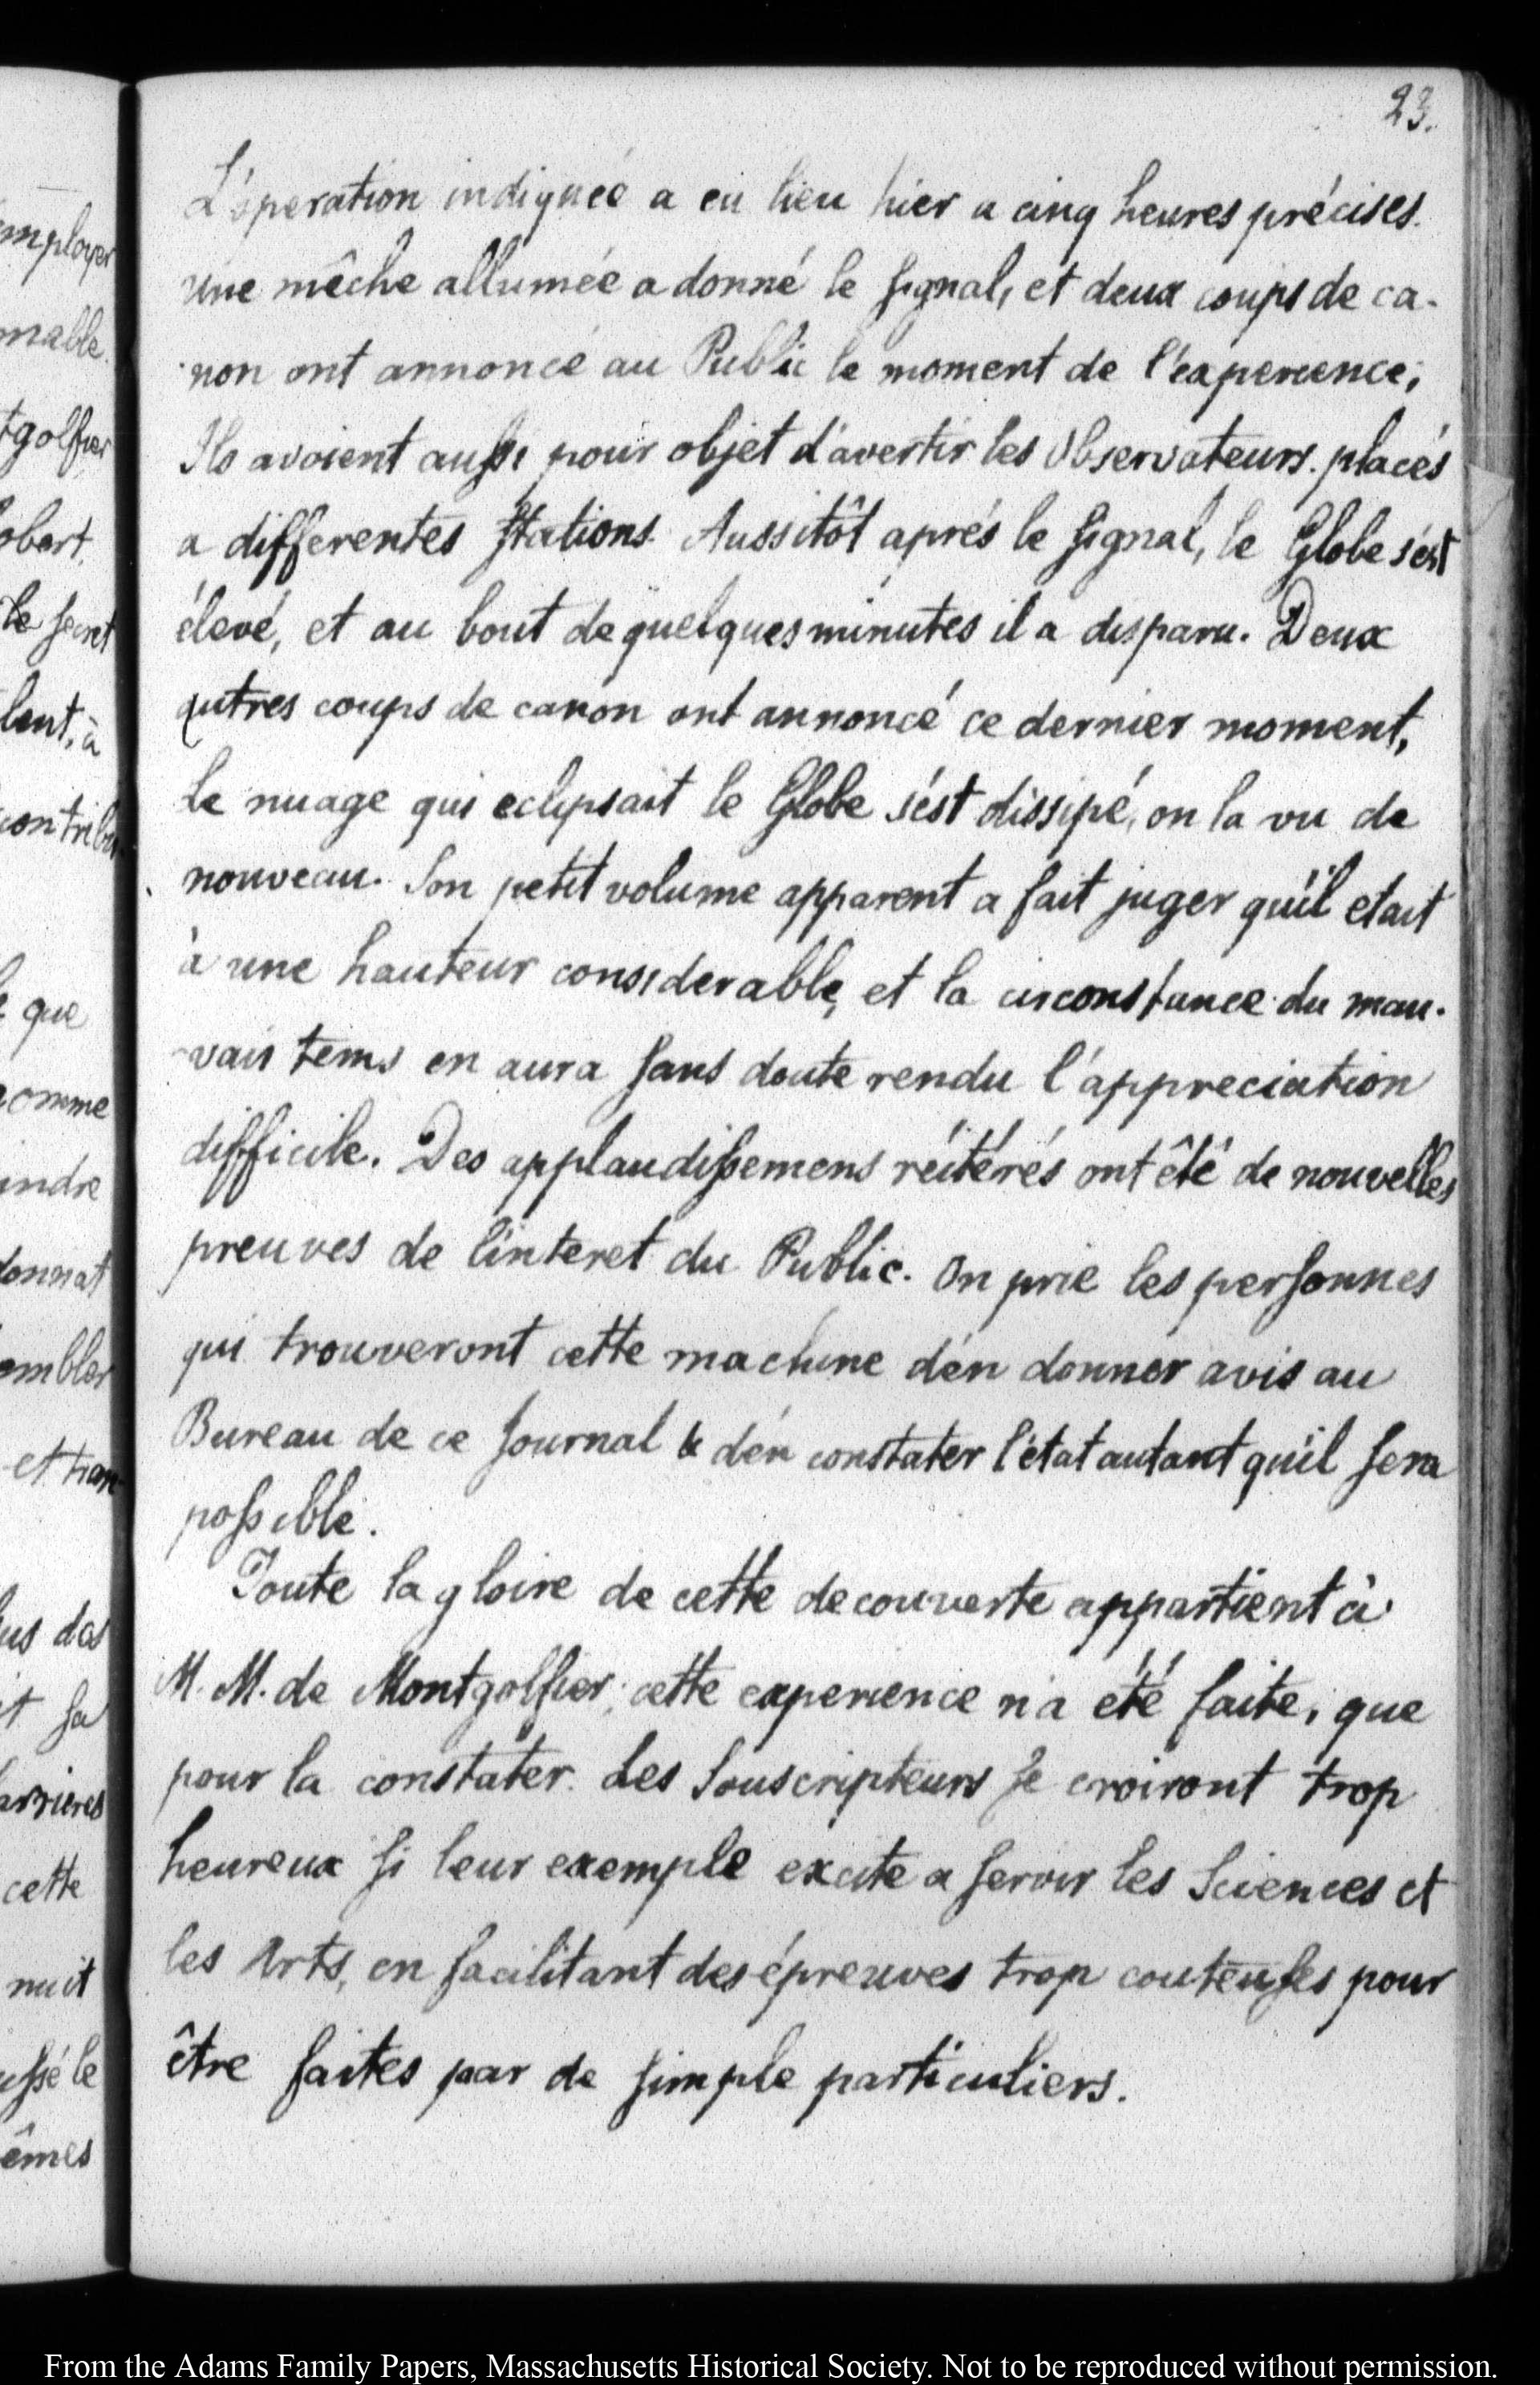 23.
L'óperation indiquée a eu lieu hier a cinq heures précises.
une mêche allumée a donné le signal, et deux coups de ca-
non ont annoncé au Public le moment de l'éxperience,
Ils avoient aussi pour objet d'avertir les Observateurs placés
a differentes stations. Aussitôt aprés le signal, le Globe s'est
élevé, et au bout de quelques minutes il a disparu. Deux
autres coups de canon ont annoncé ce dernier moment,
le nuage qui eclipsait le Globe s'ést dissipé, on la vu de
nouveau. Son petit volume apparent a fait juger qu'il etait
à une hauteur considerable, et la circonstance du mau-
vais tems en aura sans doute rendu l'appreciation
difficile. Des applaudissemens réitérés ont êté de nouvelles
preuves de l'interet du Public. On prie les personnes
qui trouveront cette machine d'én donner avis au
Bureau de ce Journal & d'én constater l'état autant qu'il sera
possible.
Toute la gloire de cette decouverte appartient à
M. M. de Montgolfier; cette experience n'a été faite, que
pour la constater. Les Souscripteurs se croiront trop
heureux si leur exemple excite a servir les Sciences et
les Arts, en facilitant des épreuves trop couteuses pour
être faites par de simple particuliers.
employer
mable.
tgolfier
obert
le secret
lent, à
contribu
que
comme
indre
donnat
embler
et tran-
us des
it sa
arrieres
cette
nuit
ussé le
êmes
From the Adams Family Papers, Massachusetts Historical Society. Not to be reproduced without permission.